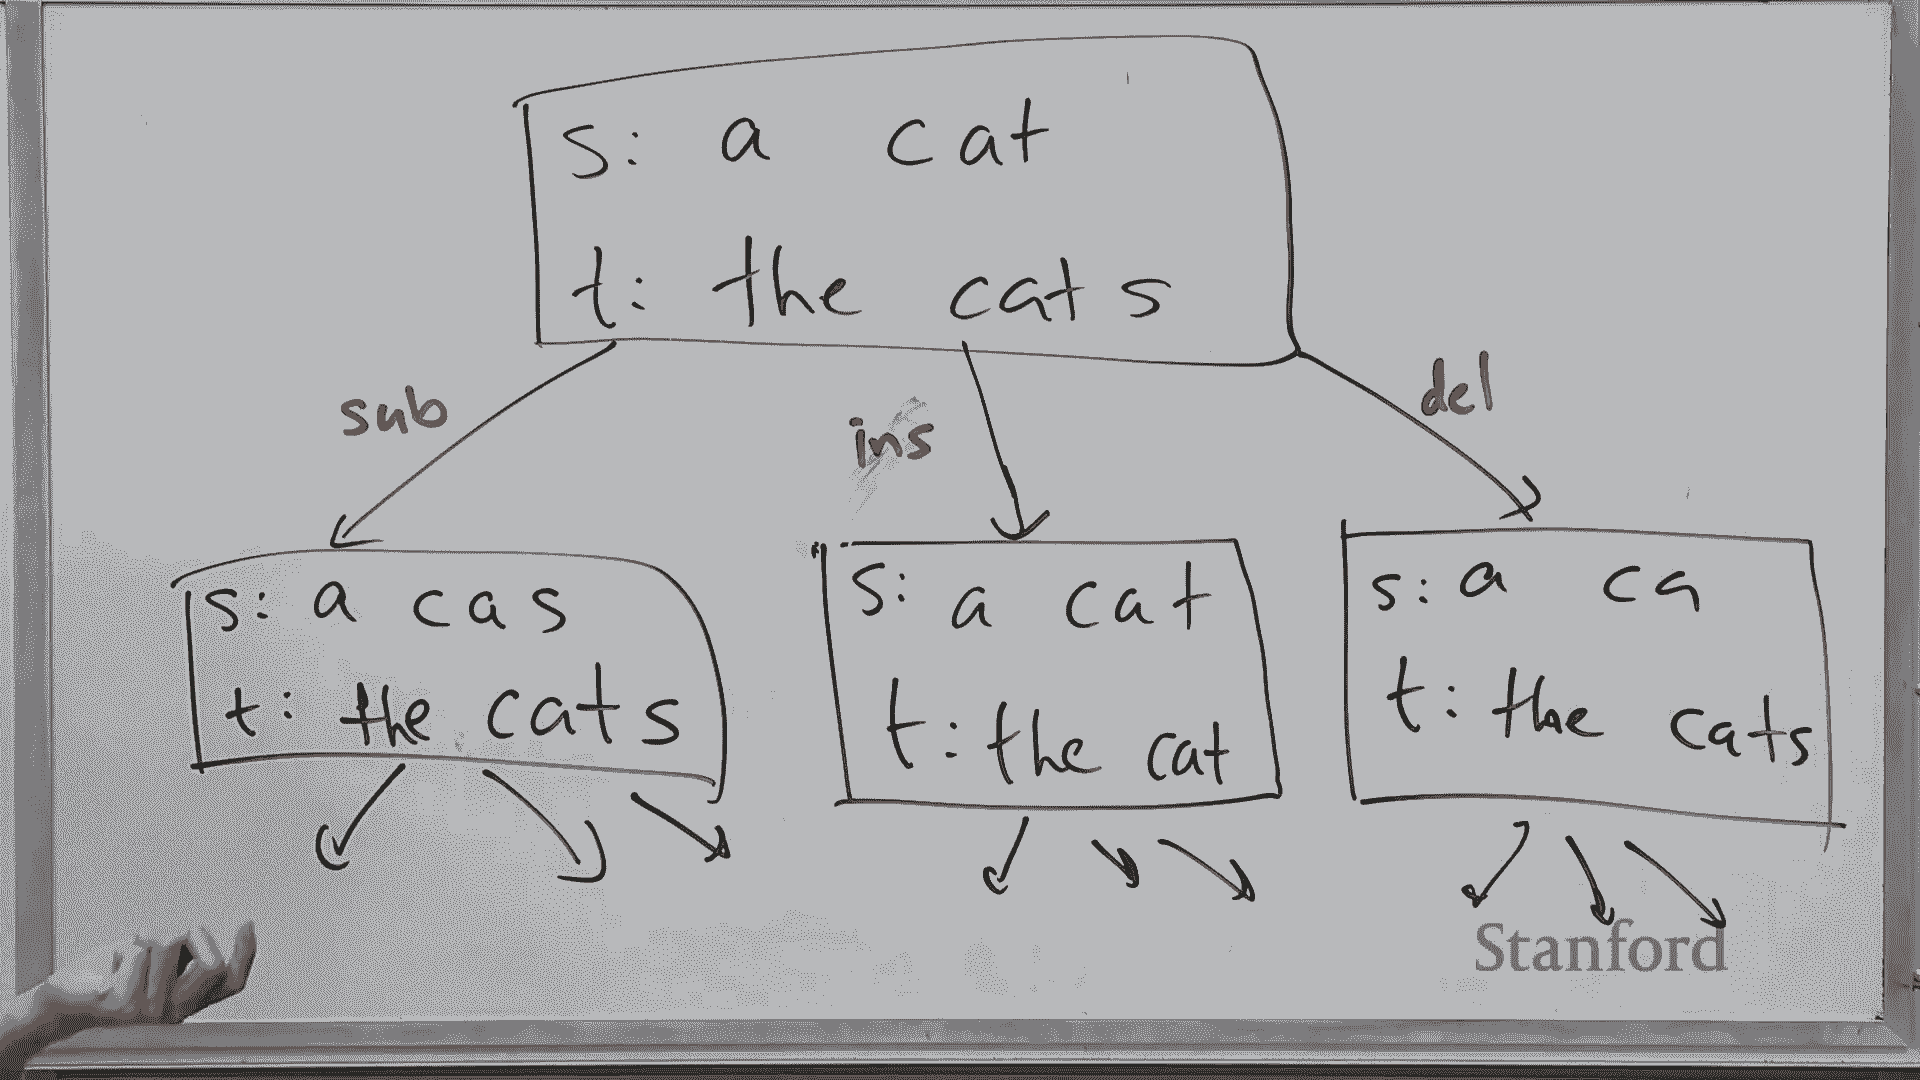 s: a cat
t: the cats
sub
ins
del
s: a cas
t: the cats
s: a cat
t: the cat
s: a ca
t: the cats
Stanford